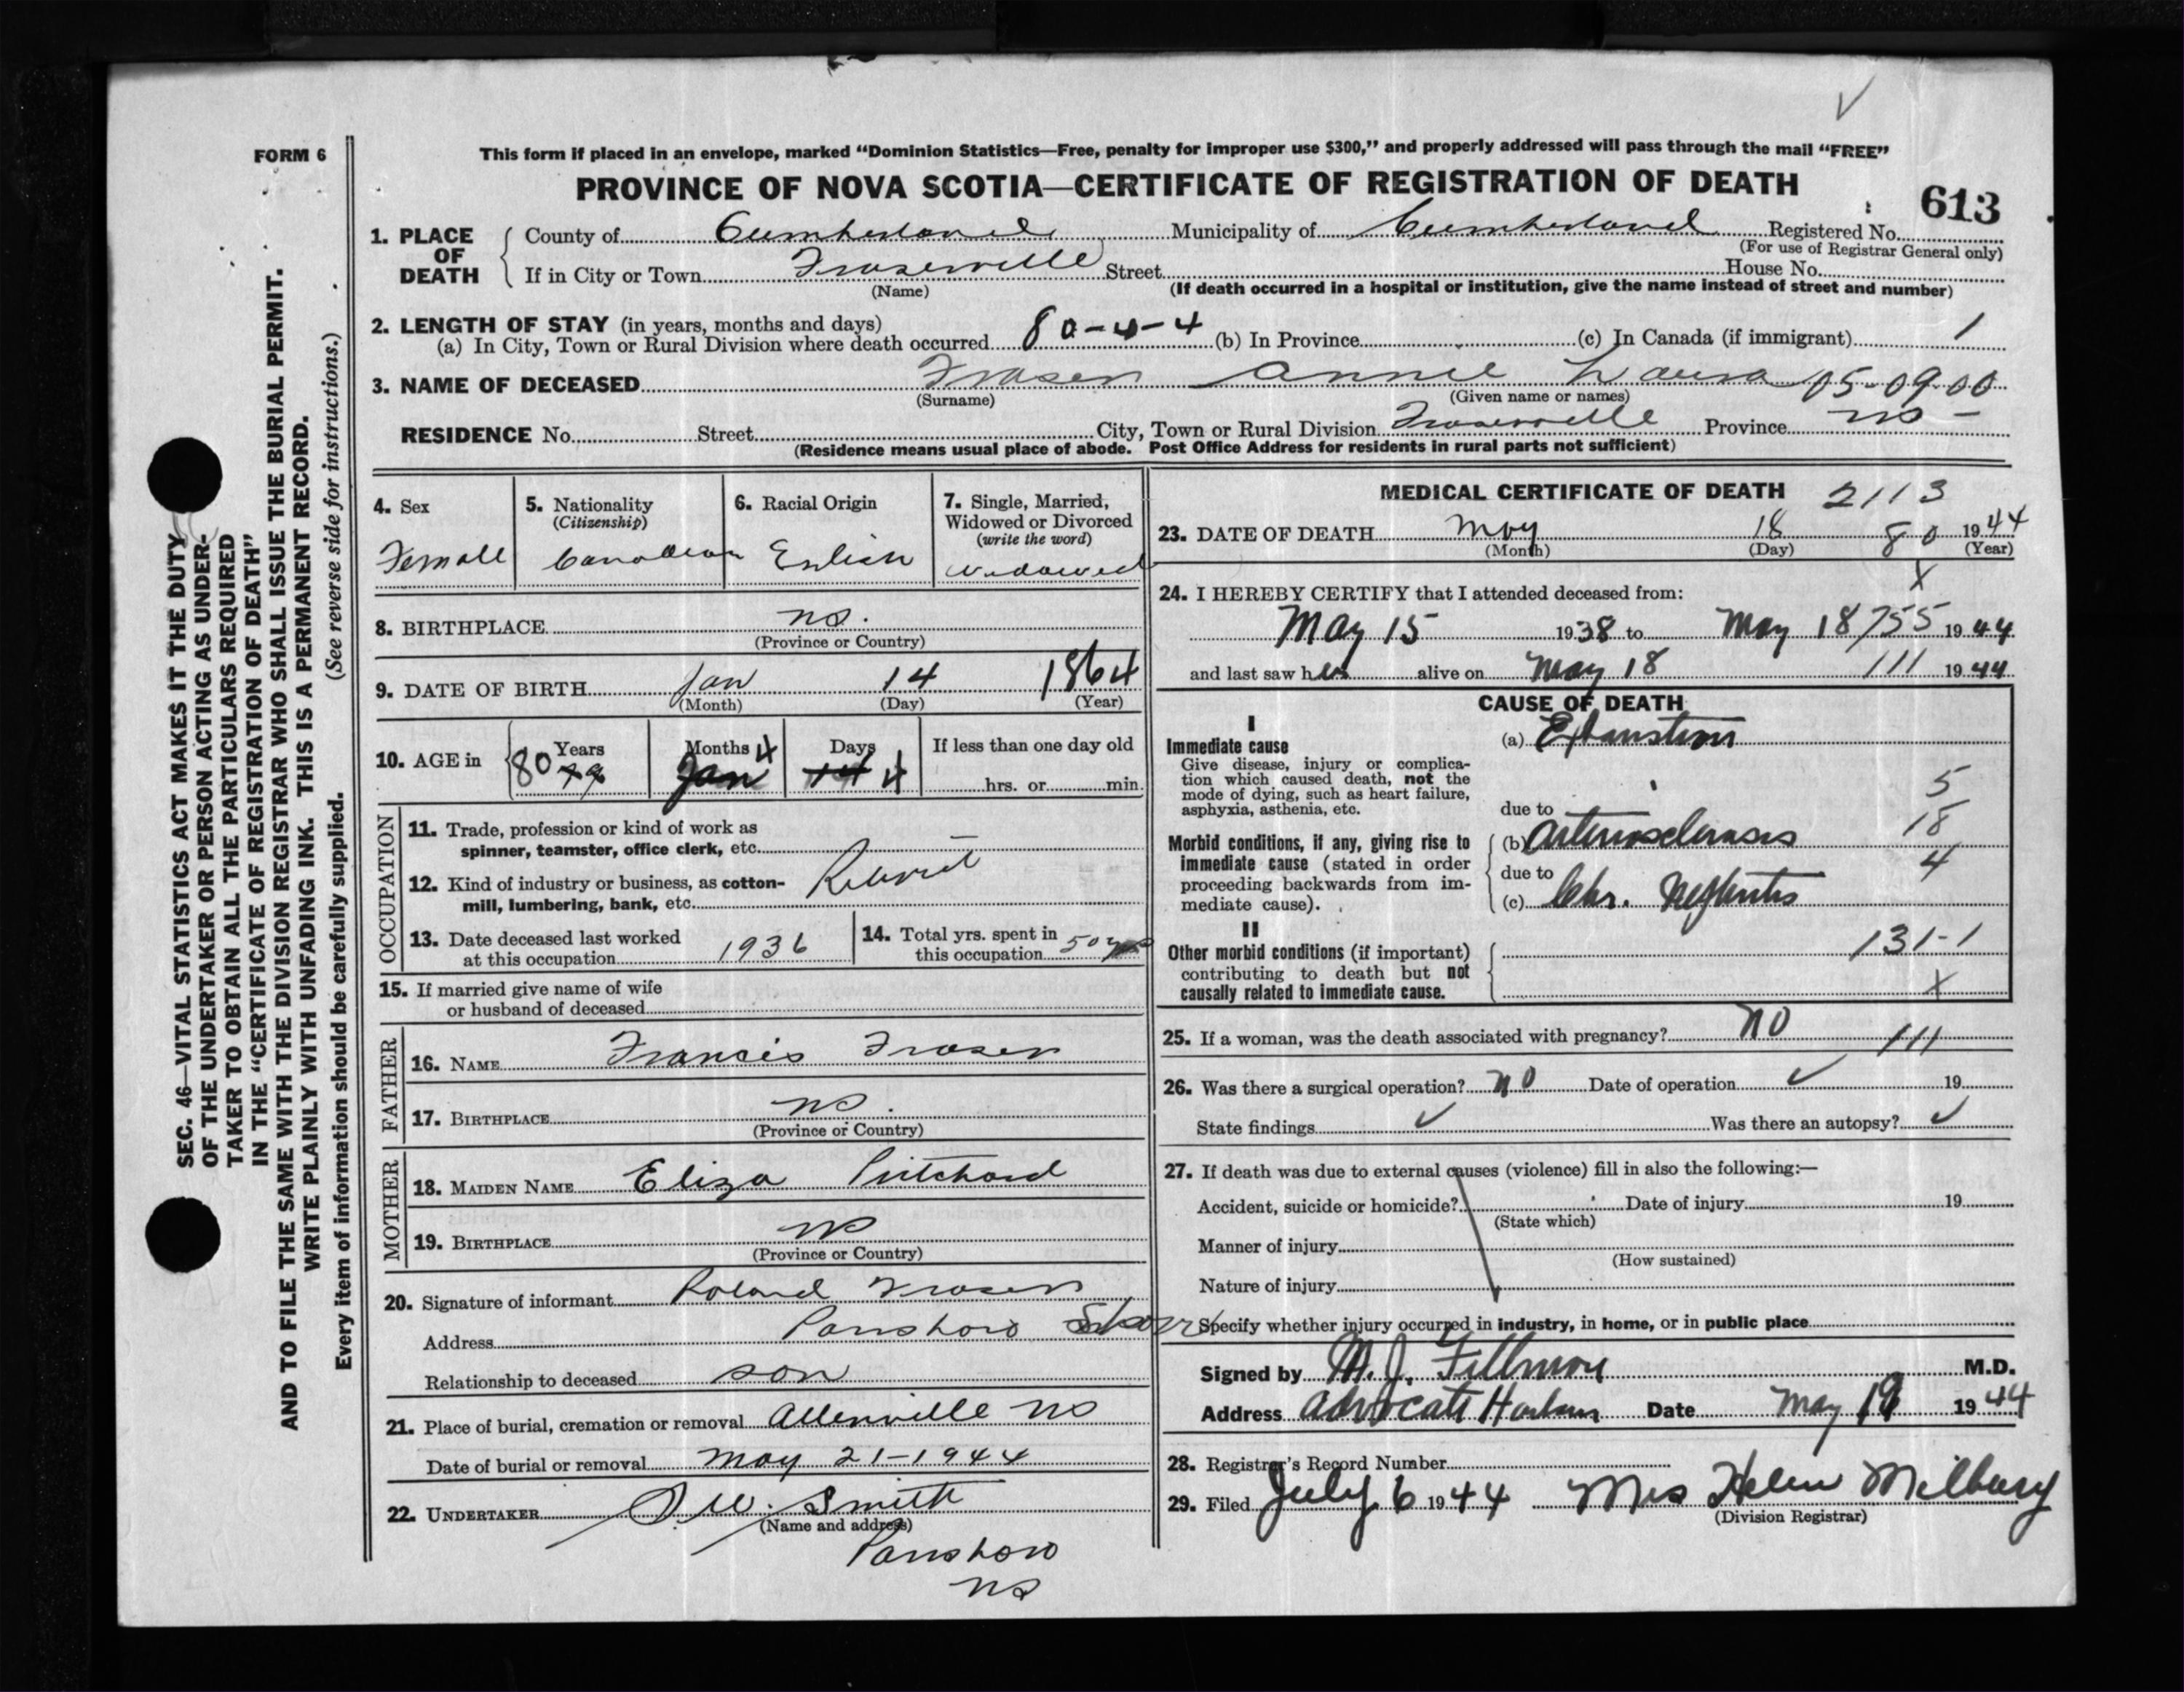 FORM 6
This form if placed in an envelope, marked “Dominion Statistics—Free, penalty for improper use $300,” and properly addressed will pass through the mail “FREE”
PROVINCE OF NOVA SCOTIA—CERTIFICATE OF REGISTRATION OF DEATH
613
1. PLACE OF DEATH
County of Cumberland Municipality of Cumberland Registered No.
(For use of Registrar General only)
If in City or Town Fraserville Street House No.
(Name) (If death occurred in a hospital or institution, give the name instead of street and number)
2. LENGTH OF STAY (in years, months and days)
(a) In City, Town or Rural Division where death occurred 80-4-4 (b) In Province (c) In Canada (if immigrant) 1
3. NAME OF DECEASED Fraser Annie Laura 05-09-00
(Surname) (Given name or names)
RESIDENCE No. Street City, Town or Rural Division Fraserville Province NS -
(Residence means usual place of abode. Post Office Address for residents in rural parts not sufficient)
4. Sex
Female
5. Nationality
(Citizenship)
Canadian
6. Racial Origin
Enlish
7. Single, Married,
Widowed or Divorced
(write the word)
Widowed
8. BIRTHPLACE NS.
(Province or Country)
9. DATE OF BIRTH Jan 14 1864
(Month) (Day) (Year)
10. AGE in
Years
80
Months 4
Jan
Days
14 4
If less than one day old
hrs. or min.
OCCUPATION
11. Trade, profession or kind of work as
spinner, teamster, office clerk, etc. —
12. Kind of industry or business, as cotton-
mill, lumbering, bank, etc. Retired
13. Date deceased last worked
at this occupation 1936
14. Total yrs. spent in
this occupation 50 yrs
15. If married give name of wife
or husband of deceased
FATHER
16. NAME Francis Fraser
17. BIRTHPLACE NS.
(Province or Country)
MOTHER
18. MAIDEN NAME Eliza Pritchard
19. BIRTHPLACE NS
(Province or Country)
20. Signature of informant Roland Fraser
Address Parrsboro Shore
Relationship to deceased son
21. Place of burial, cremation or removal Allenville NS
Date of burial or removal May 21-1944
22. UNDERTAKER Smith
(Name and address)
Parrsboro
NS
MEDICAL CERTIFICATE OF DEATH 2113
23. DATE OF DEATH May 18 80 1944
(Month) (Day) (Year)
X
24. I HEREBY CERTIFY that I attended deceased from:
May 15 1938 to May 18 755 1944
and last saw her alive on May 18 111 1944
CAUSE OF DEATH
I
Immediate cause
Give disease, injury or complica-
tion which caused death, not the
mode of dying, such as heart failure,
asphyxia, asthenia, etc.
(a) Exhaustion
5
due to
18
Morbid conditions, if any, giving rise to
immediate cause (stated in order
proceeding backwards from im-
mediate cause).
(b) Arteriosclerosis
4
due to
(c) Chr. Nephritis
II
Other morbid conditions (if important)
contributing to death but not
causally related to immediate cause.
131-1
X
25. If a woman, was the death associated with pregnancy? NO 111
26. Was there a surgical operation? NO Date of operation ✓ 19
State findings ✓ Was there an autopsy? ✓
27. If death was due to external causes (violence) fill in also the following:—
Accident, suicide or homicide? Date of injury 19
(State which)
Manner of injury
(How sustained)
Nature of injury
Specify whether injury occurred in industry, in home, or in public place
Signed by M. J. Fillmore M.D.
Address Advocate Harbour Date May 19 1944
28. Registrar's Record Number
29. Filed July 6 1944 Mrs Helen Milbury
(Division Registrar)
SEC. 46—VITAL STATISTICS ACT MAKES IT THE DUTY
OF THE UNDERTAKER OR PERSON ACTING AS UNDER-
TAKER TO OBTAIN ALL THE PARTICULARS REQUIRED
IN THE “CERTIFICATE OF REGISTRATION OF DEATH”
AND TO FILE THE SAME WITH THE DIVISION REGISTRAR WHO SHALL ISSUE THE BURIAL PERMIT.
WRITE PLAINLY WITH UNFADING INK. THIS IS A PERMANENT RECORD.
Every item of information should be carefully supplied. (See reverse side for instructions.)